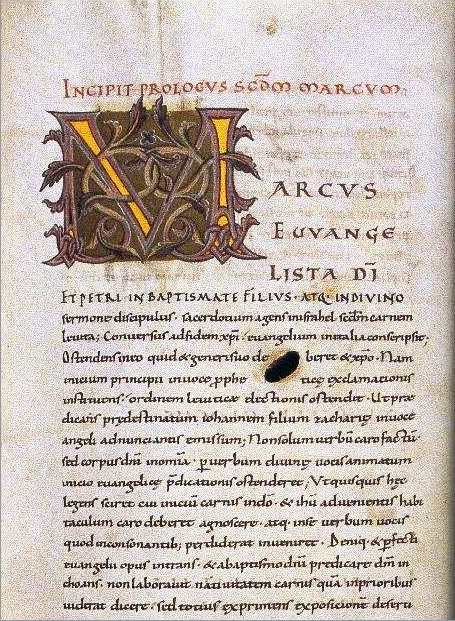 INCIPIT PROLOGUS SCDM MARCUM·
MARCUS
EUVANGE
LISTA DI
ET PETRI IN BAPTISMATE FILIUS· ATQ; IN DIVINO
sermone discipulus· sacerdotium agens in israhel scdm carnem
leuita; Conuersus ad fidem xpi· euangelium in italia conscripsit·
Ostendens in eo quid & generi suo deberet & xpo· Nam
inicium principii in uoce pphetice exclamationis
instituens· ordinem leuitice electionis ostendit· Ut pre
dicans predestinatum iohannem filium zacharie in uoce
angeli adnunciantis emissum; Non solum uerbu caro factu
sed corpus dni in omnia· p uerbum diuine uocis animatum
inicio euangelice pdicationis ostenderet; Ut quisquis hec
legens sciret cui inicium carnis in dno· & ihu aduenientis habi
taculum caro deberet agnoscere· atq· in se uerbum uocis
quod in consonantib; perdiderat inueniret· Deniq; & pfecti
euangelii opus intrans· & a baptismo dni predicare dm in
choans· non laborauit natiuitatem carnis qua in prioribus
uiderat dicere· sed totius exprimens expositione deserti